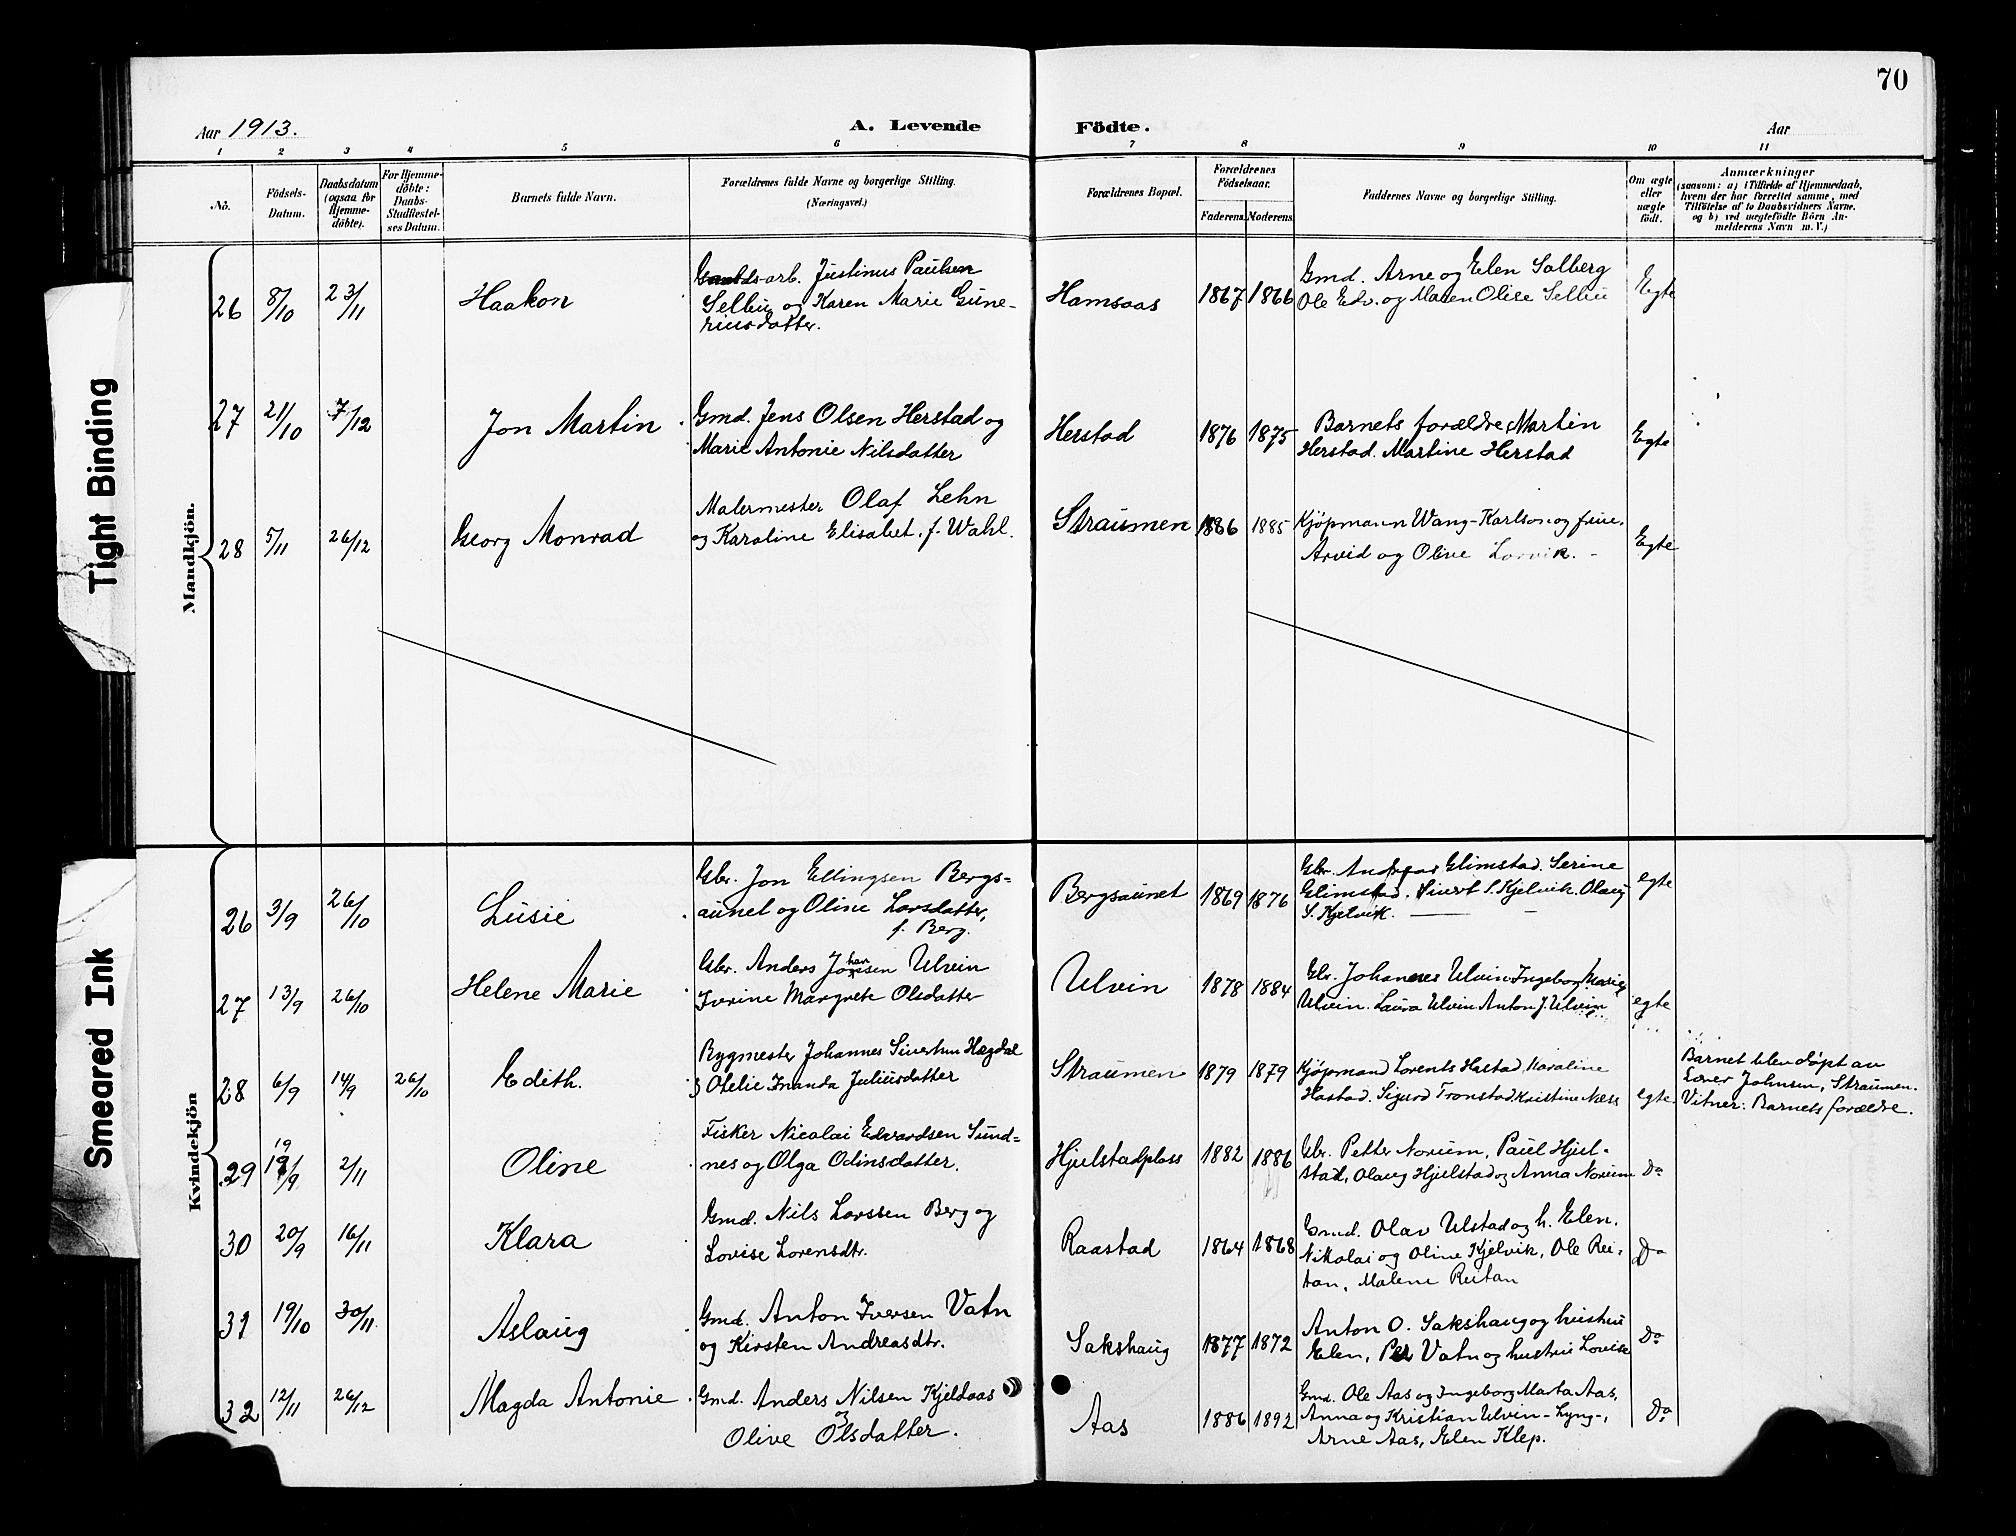 70
Aar 1913. A. Levende Födte. Aar
1 2 3 4 5 6 7 8 9 10 11
No.
Födsels-
Datum.
Daabsdatum
(ogsaa for
Hjemme-
döbte).
For Hjemme-
döbte:
Daabs-
Stadfæstel-
ses Datum.
Barnets fulde Navn.
Forældrenes fulde Navne og borgerlige Stilling.
(Næringsvei.)
Forældrenes Bopæl.
Forældrenes
Födselsaar.
Faderens. Moderens.
Faddernes Navne og borgerlige Stilling.
Om ægte
eller
uægte
født.
Anmærkninger
(saasom: a) i Tilfælde af Hjemmedaab,
hvem der har forrettet samme, med
Tilføielse af to Daabsvidners Navne.
og b) ved uægtefödte Börn An-
melderens Navn m. V.)
Tight Binding
Smeared Ink
Mandkjön.
26 8/10 23/11 Haakon
Gaardsarb. Justinus Paulsen
Selbu og Karen Marie Gune-
riusdatter.
Hamsaas 1867 1866
Gmd. Arne og Elen Solberg
Ole Edv. og Maren Olise Selbu
Egte
27 21/10 7/12 Jon Martin
Gmd. Jens Olsen Herstad og
Marie Antonie Nilsdatter
Herstad 1876 1875
Barnets forældre, Martin
Herstad. Martine Herstad
Egte
28 5/11 26/12 Georg Monrad
Malermester Olaf Lehn
og Karoline Elisabet. f. Wahl.
Straumen 1866 1885
Kjøpmann Wang-Karlson og frue.
Arvid og Olive Lorvik. -
Egte
Kvindekjön
26 3/9 26/10 Lusie
Gbr. Jon Ellingsen Bergs=
aunet og Oline Larsdatter,
f. Berg.
Bergsaunet 1869 1876
Gbr. Andreas Glimstad. Serine
Glimstad. Sivert S. Kjelvik. Olaug
S. Kjelvik.
egte
27 13/9 26/10 Helene Marie
Gbr. Anders Johansen Ulvin
Iverine Margrete Olsdatter
Ulvin 1878 1884
Gbr. Johannes Ulvin Ingeborg Marie
Ulvin. Laura Ulvin Anton J. Ulvin
egte
28 6/9 14/9 26/10 Edith.
Bygmester Johannes Sivertsen Hægdal
og Ofelie Inanda Juliusdatter
Straumen 1879 1879
Kjøpmand Lorents Hastad. Karoline
Hastad. Sigurd Tronstad. Kristine Næss
egte.
Barnet blev døpt av
Lærer Johnsen, Straumen.
Vitner: Barnets forældre.
29 19/9 2/11 Oline
Fisker Nicolai Edvardsen Sund=
nes og Olga Odinsdatter.
Hjulstadplass 1882 1886
Gbr. Petter Norum, Paul Hjul-
stad, Olaug Hjulstad og Anna Norum
Do
30 20/9 16/11 Klara
Gmd. Nils Larssen Berg og
Lovise Lorensdtr.
Raastad 1864 1868
Gmd. Olav Ulstad og h. Elen.
Nikolai og Oline Kjelvik, Ole Rei-
tan, Malene Reitan
Do
31 19/10 30/11 Aslaug
Gmd. Anton Iversen Vatn
og Kirsten Andreasdtr.
Sakshaug 1877 1872
Anton O. Sakshaug og hustru
Elen, Per Vatn og hustru Lovise
Do
32 12/11 26/12 Magda Antonie
Gmd. Anders Nilsen Kjeldaas
og
Olive Olsdatter.
Aas 1886 1892
Gmd. Ole Aas og Ingeborg Marta Aas,
Anna og Kristian Ulvin-Lyng-,
Arne Aas, Elen Klep.
Do